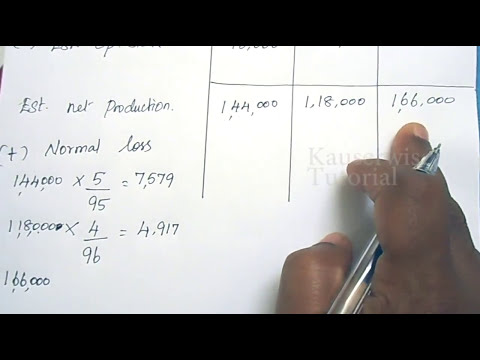 Est. net Production. 1,44,000 1,18,000 1,66,000
(+) Normal loss
1,44,000 × 5/95 = 7,579
1,18,000 × 4/96 = 4,917
1,66,000
Kauserwise
Tutorial